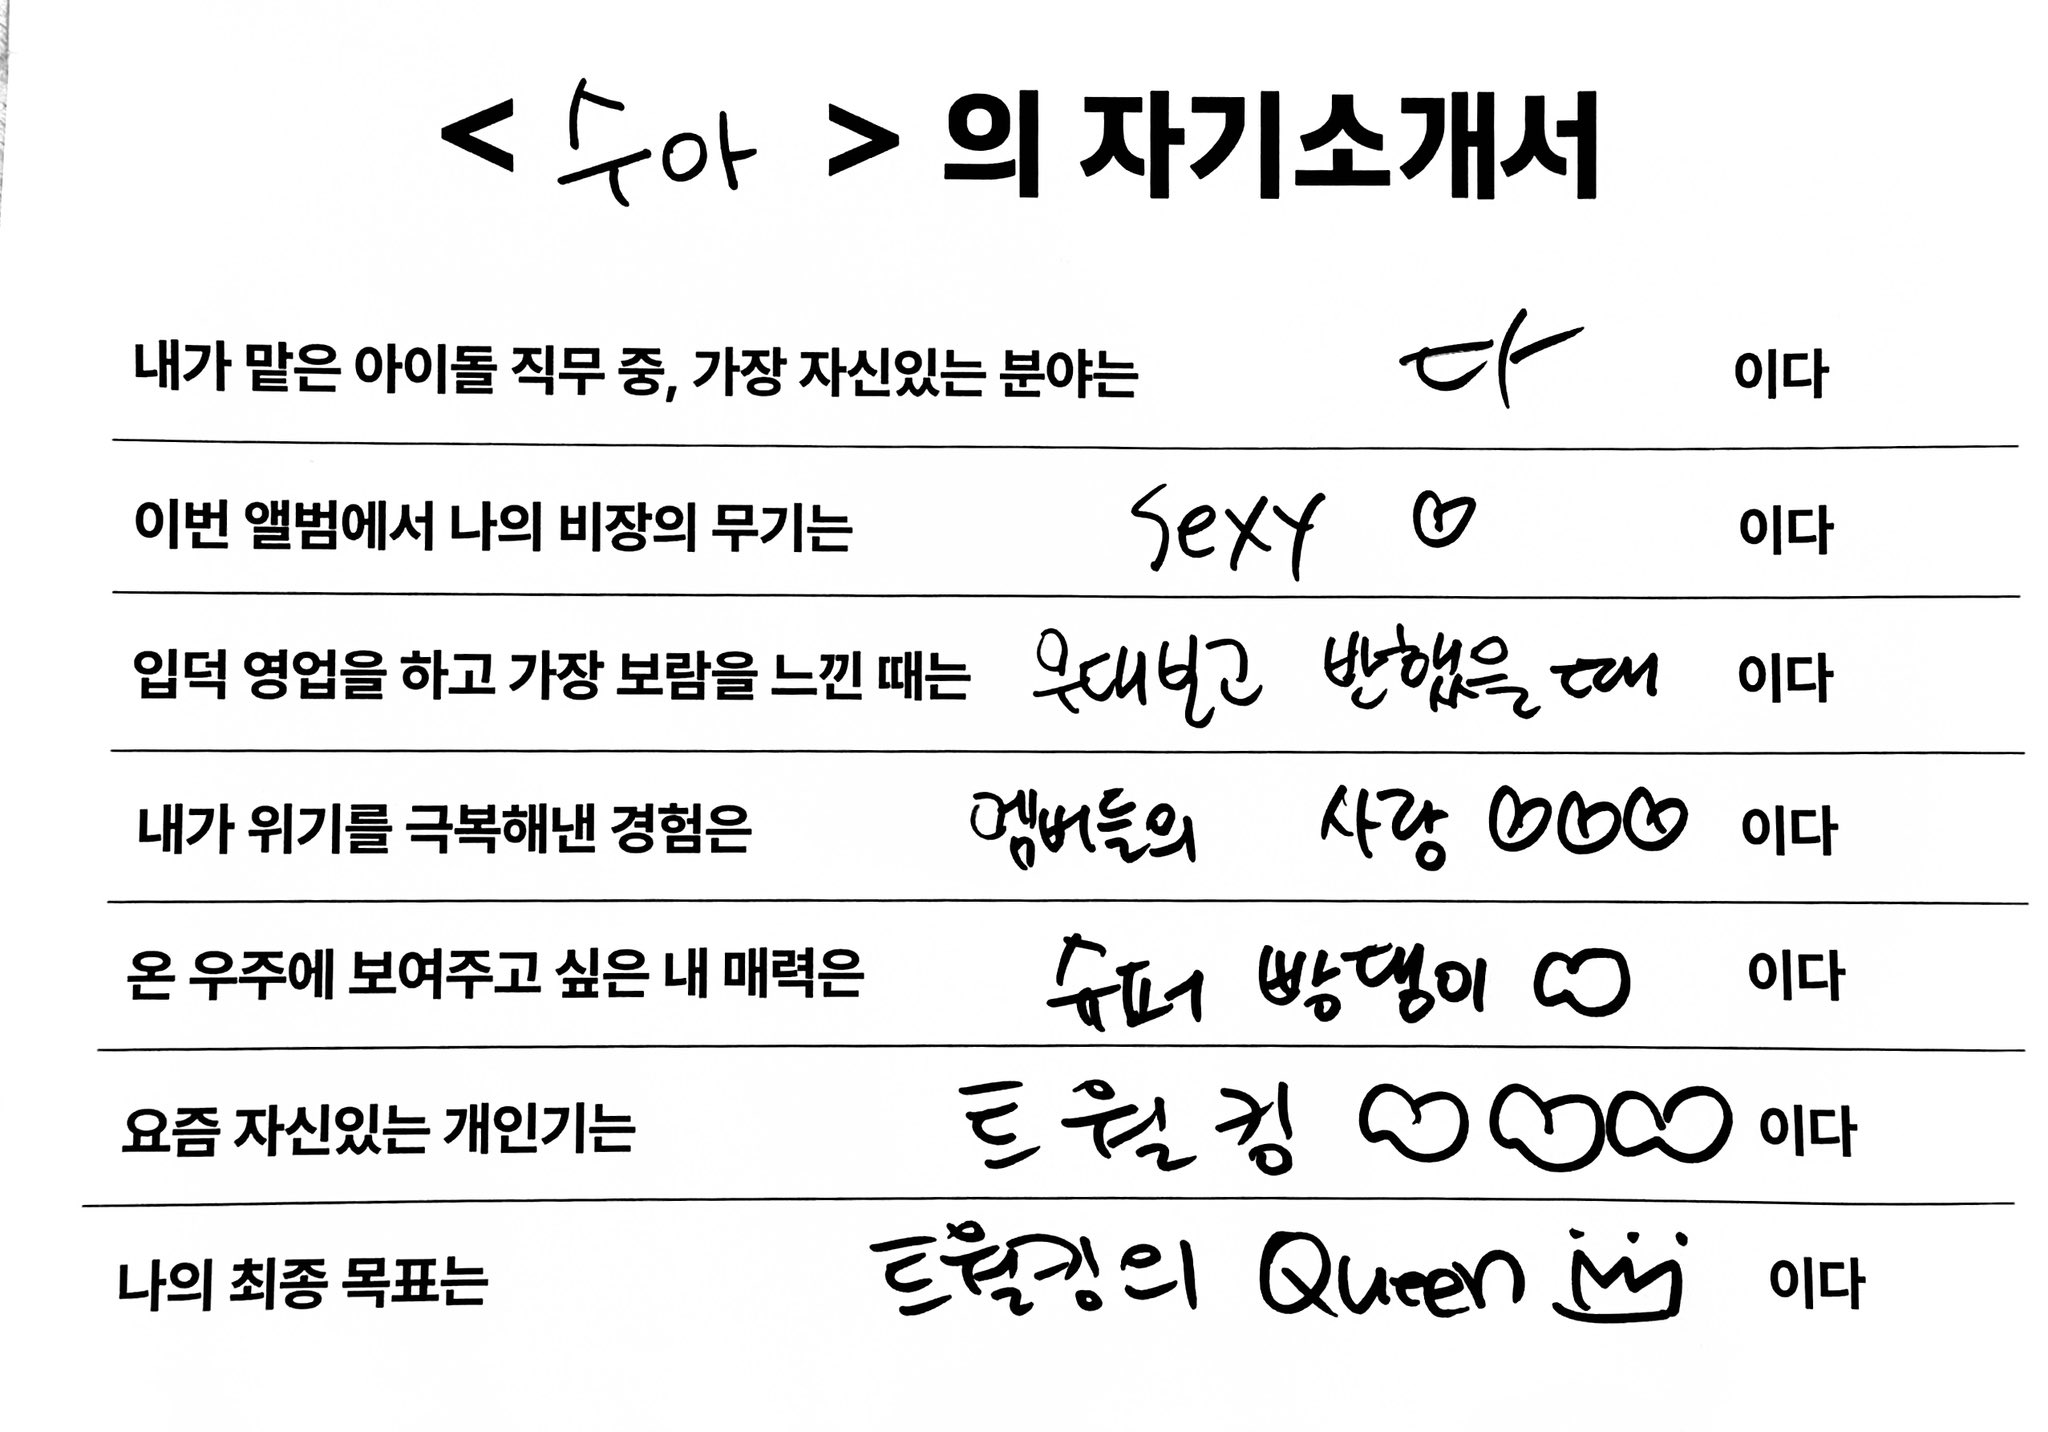 < 수아 > 의 자기소개서
내가 맡은 아이돌 직무 중, 가장 자신있는 분야는 다 이다
이번 앨범에서 나의 비장의 무기는 sexy ♡ 이다
입덕 영업을 하고 가장 보람을 느낀 때는 무대보고 반했을 때 이다
내가 위기를 극복해낸 경험은 멤버들의 사랑 ♡♡♡ 이다
온 우주에 보여주고 싶은 내 매력은 슈퍼 빵댕이 이다
요즘 자신있는 개인기는 트월킹 이다
나의 최종 목표는 트월킹의 Queen 이다